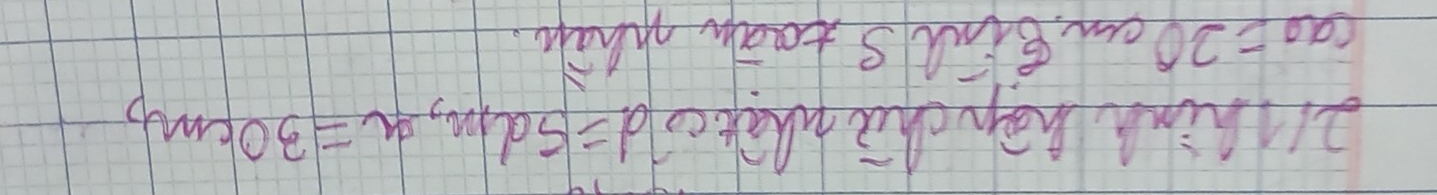 2/ 1 hình hộp chữ nhật có d = 5dm, r = 30cm,
cao = 20 cm. Tính S toàn phần.